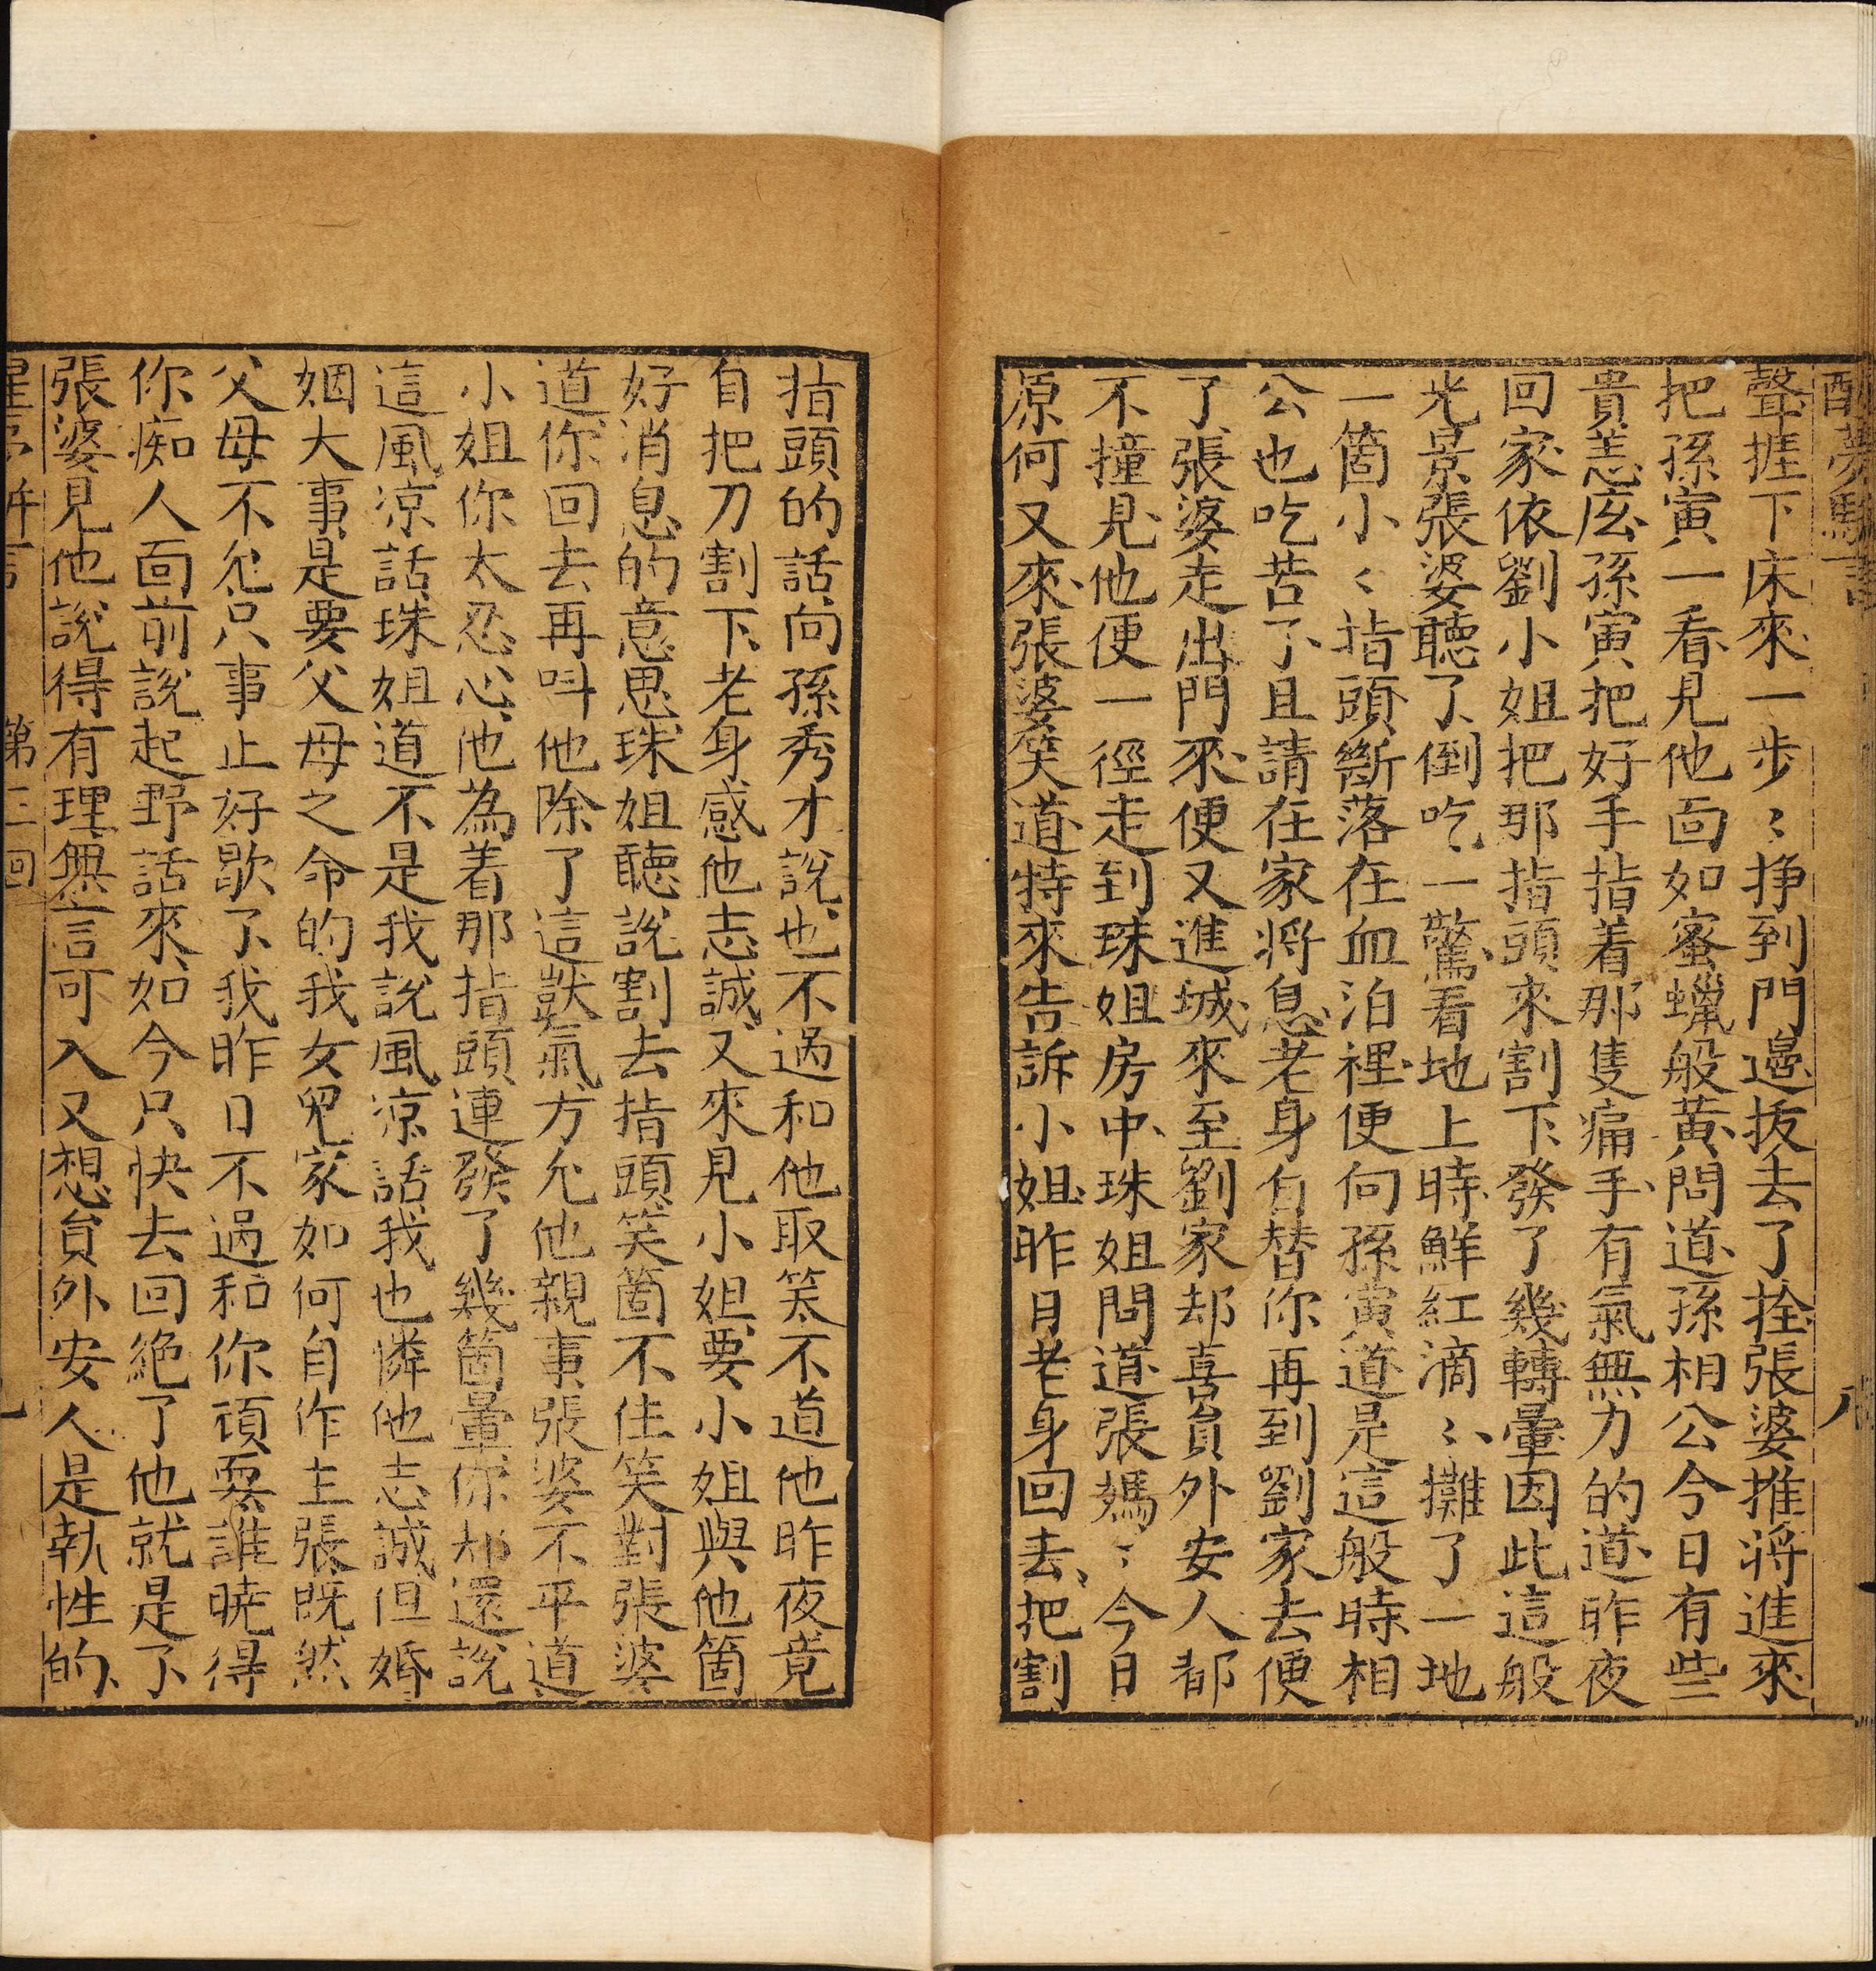 醒夢駢言
八
聲捱下床來一步〻掙到門邊拔去了拴張婆推將進來
把孫寅一看見他面如蜜蠟般黃問道孫相公今日有些
貴恙庅孫寅把好手指着那隻痛手有氣無力的道昨夜
回家依劉小姐把那指頭來割下發了幾轉暈因此這般
光景張婆聽了倒吃一驚看地上時鮮紅滴〻攤了一地
一箇小〻指頭斷落在血泊裡便向孫寅道是這般時相
公也吃苦了且請在家將息老身自替你再到劉家去便
了張婆走出門來便又進城來至劉家却喜員外安人都
不撞見他便一徑走到珠姐房中珠姐問道張媽〻今日
原何又來張婆笑道特來告訴小姐昨日老身回去把割
指頭的話向孫秀才說也不過和他取笑不道他昨夜竟
自把刀割下老身感他志誠又來見小姐要小姐與他箇
好消息的意思珠姐聽說割去指頭笑箇不住笑對張婆
道你回去再呌他除了這獃氣方允他親事張婆不平道
小姐你太忍心他為着那指頭連發了幾箇暈你却還說
這風涼話珠姐道不是我說風涼話我也憐他志誠但婚
姻大事是要父母之命的我女兒家如何自作主張既然
父母不允只事止好歇了我昨日不過和你頑耍誰曉得
你痴人面前說起野話來如今只快去回絕了他就是了
張婆見他說得有理無言可入又想員外安人是執性的
第三回